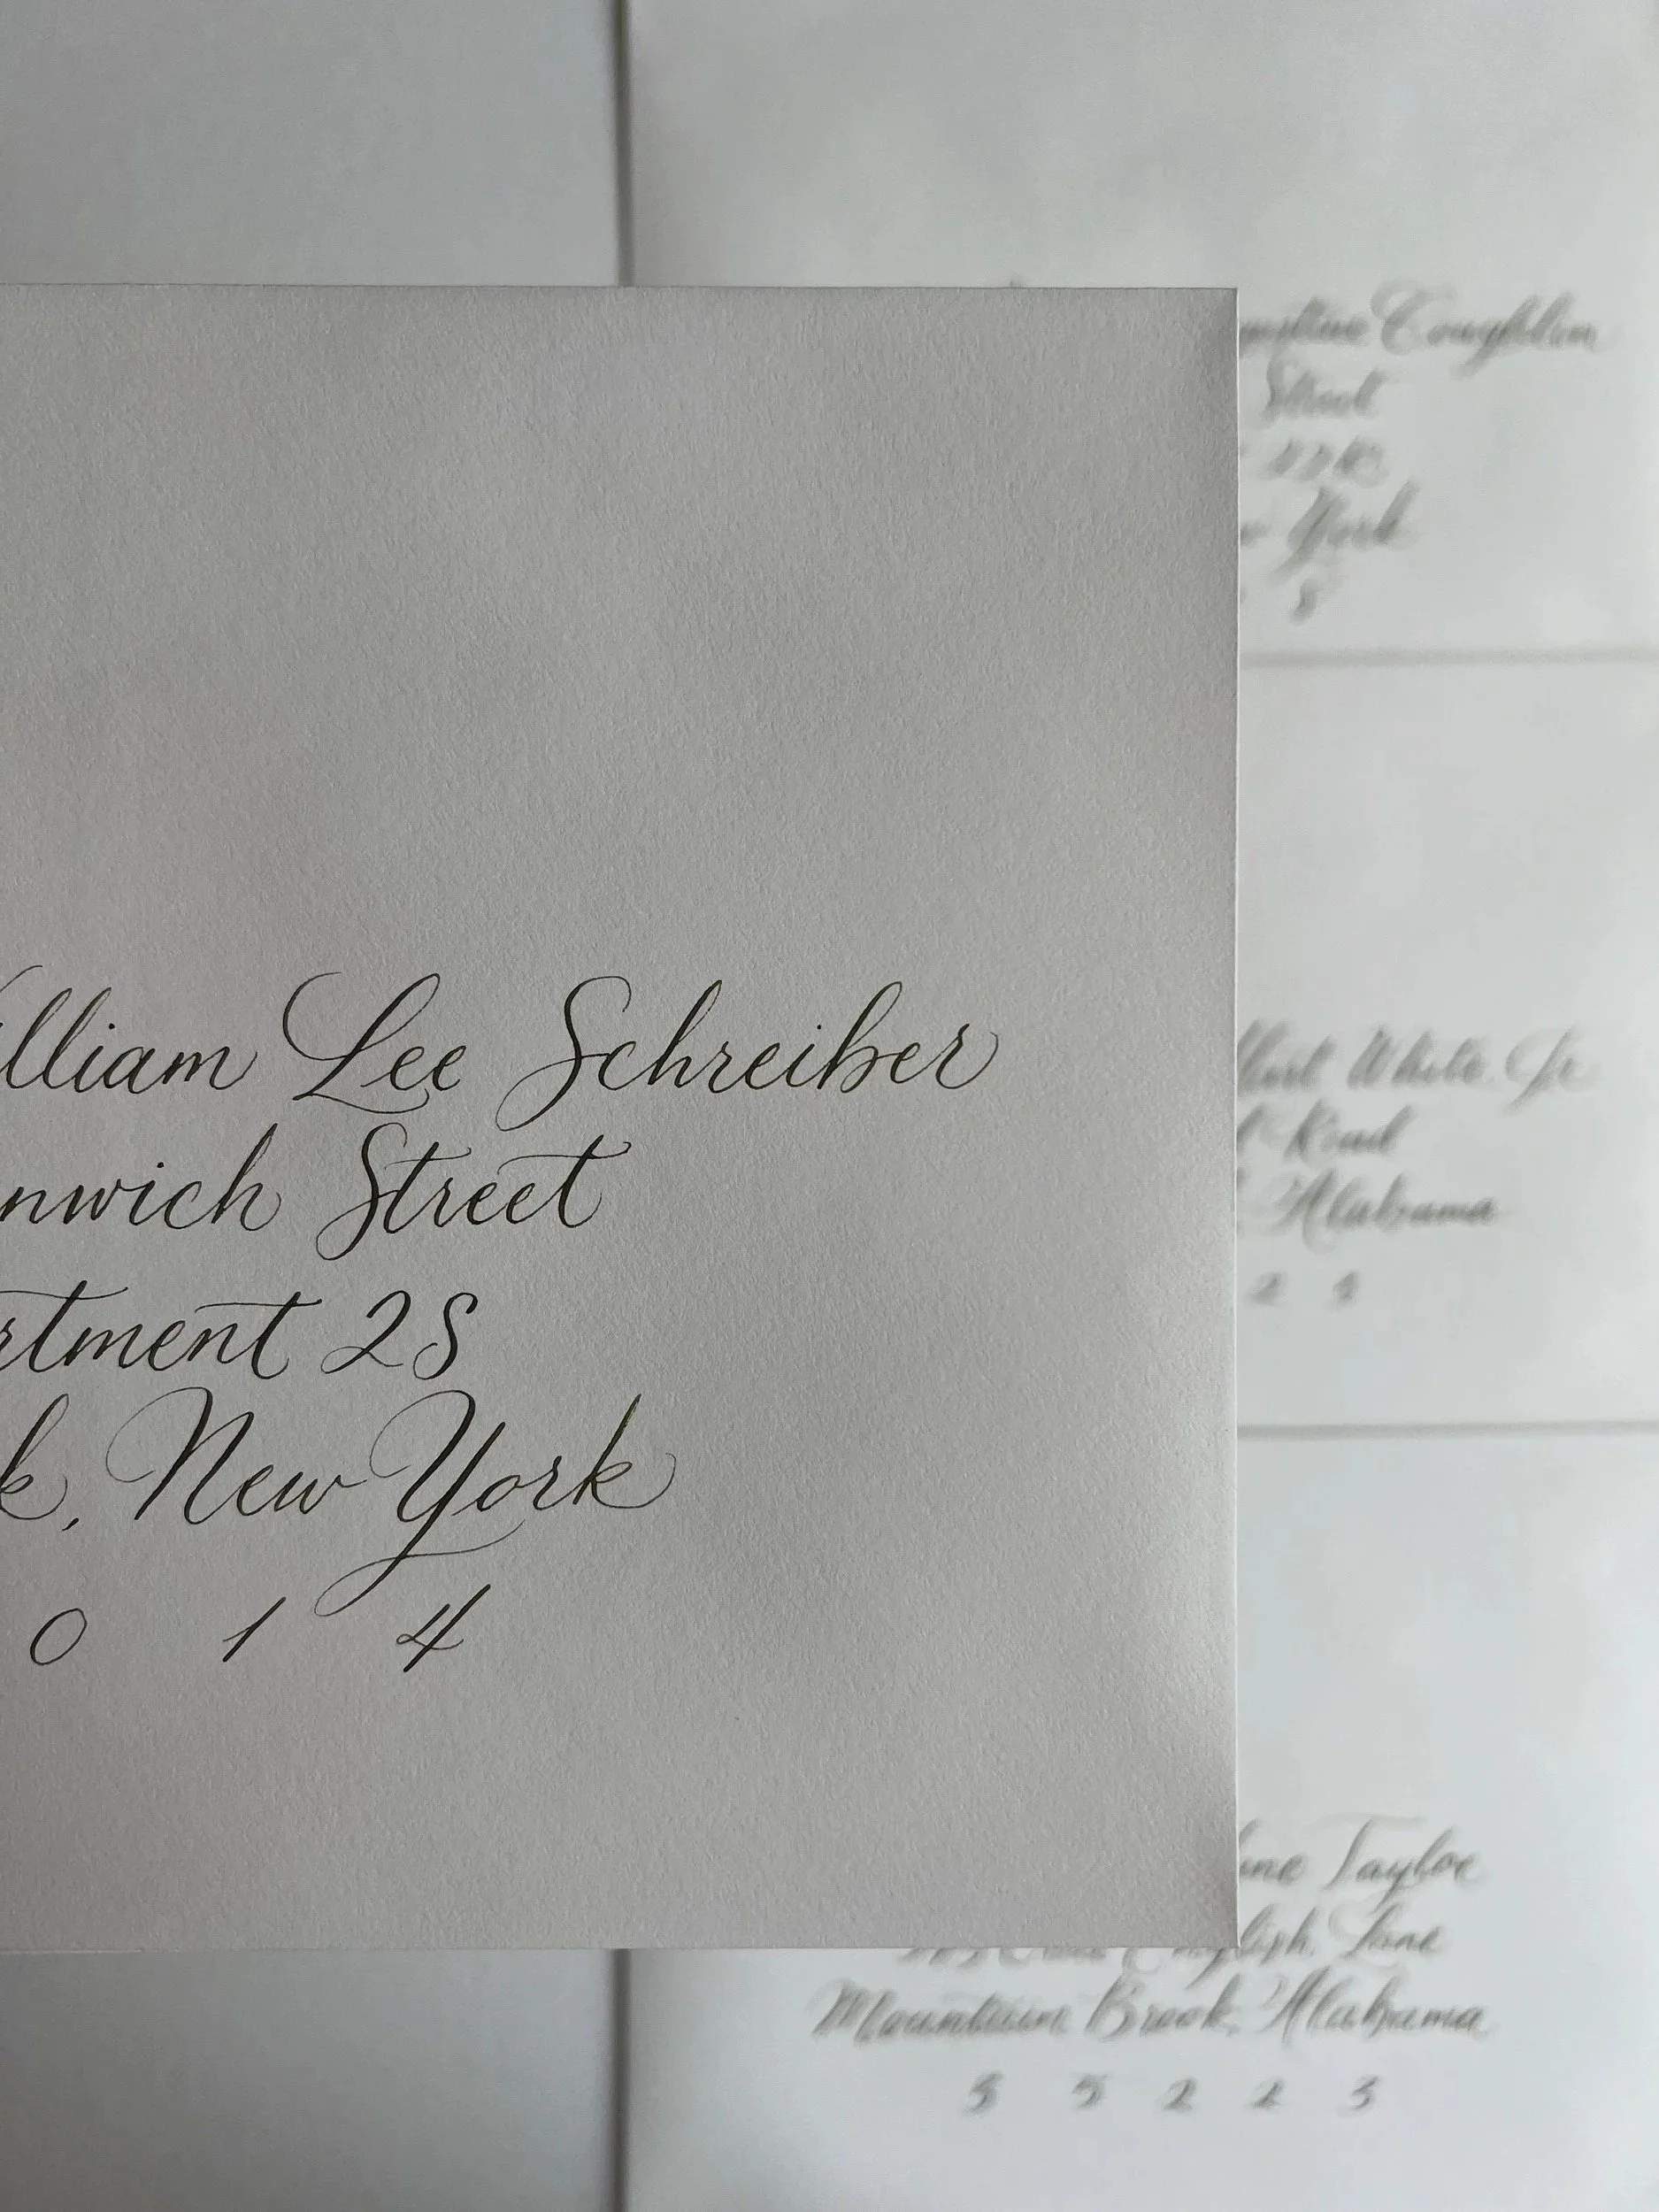 lliam Lee Schreiber
nwich Street
rtment 2S
k, New York
0 1 4
Coughlin
Street
York
8
White Jr
Road
Alabama
2 3
Taylor
English Lane
Mountain Brook, Alabama
3 5 2 2 3